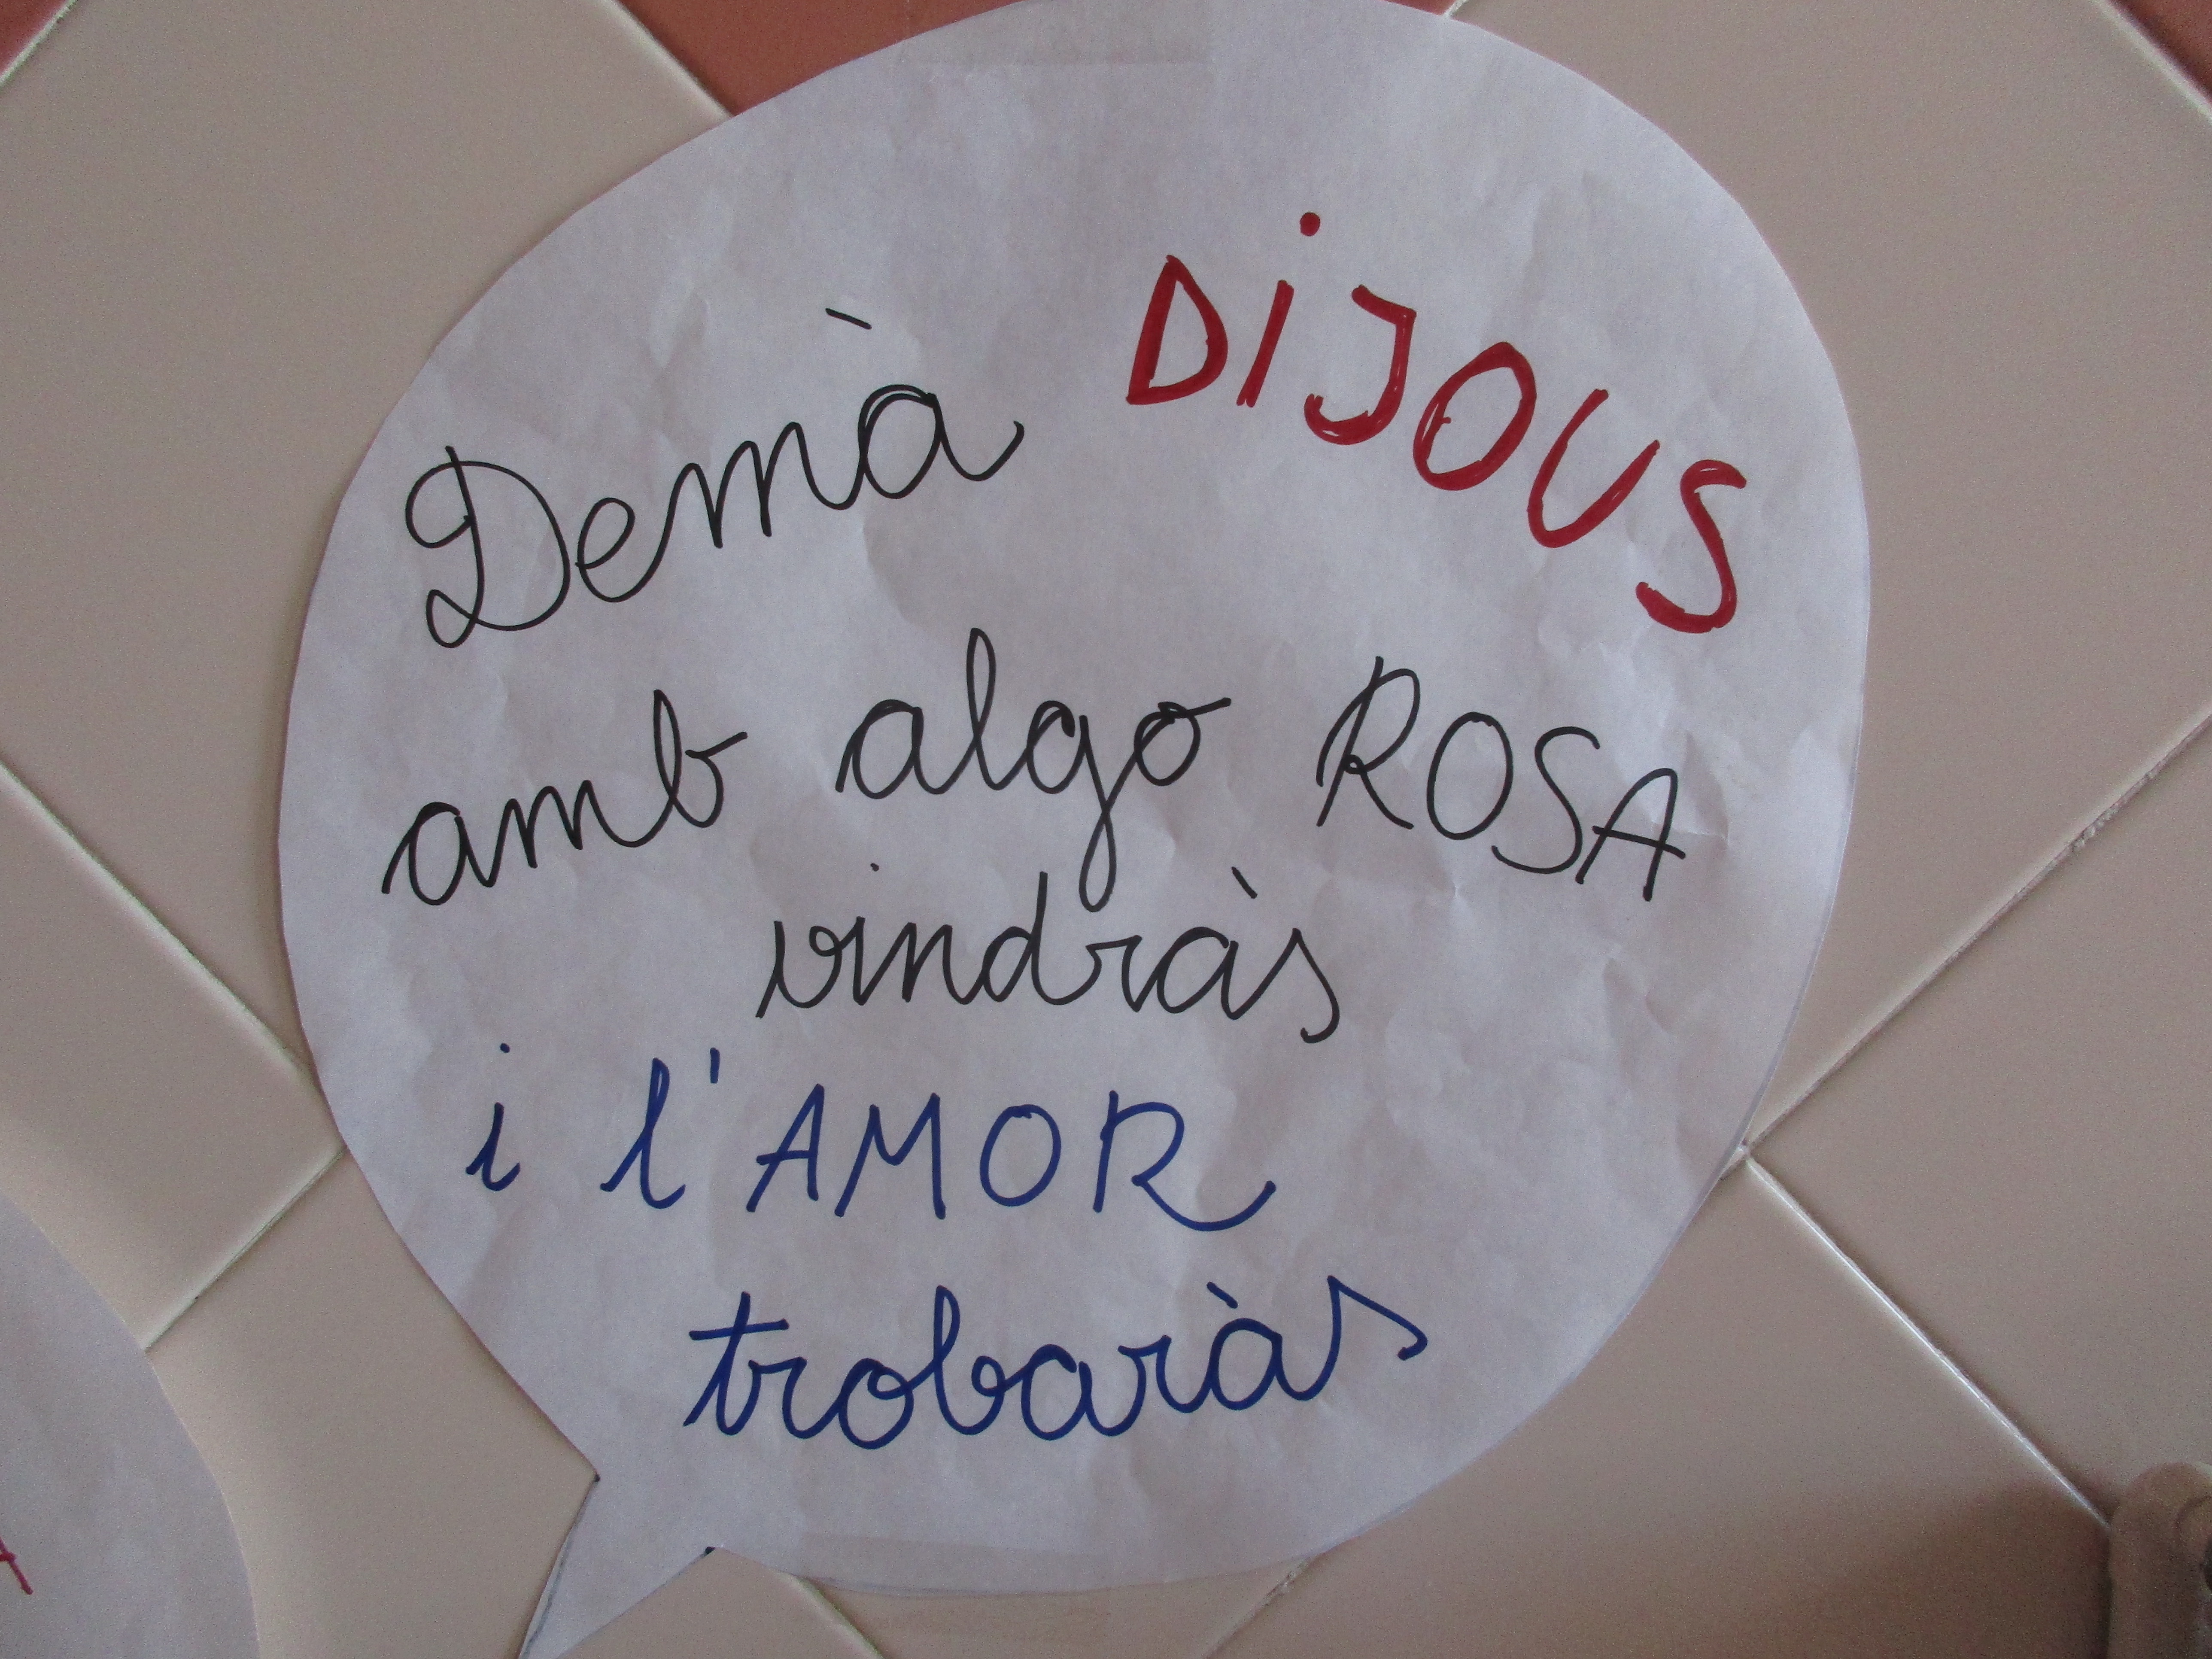 Demà DIJOUS
amb algo ROSA
vindràs
i l'AMOR
trobaràs
A